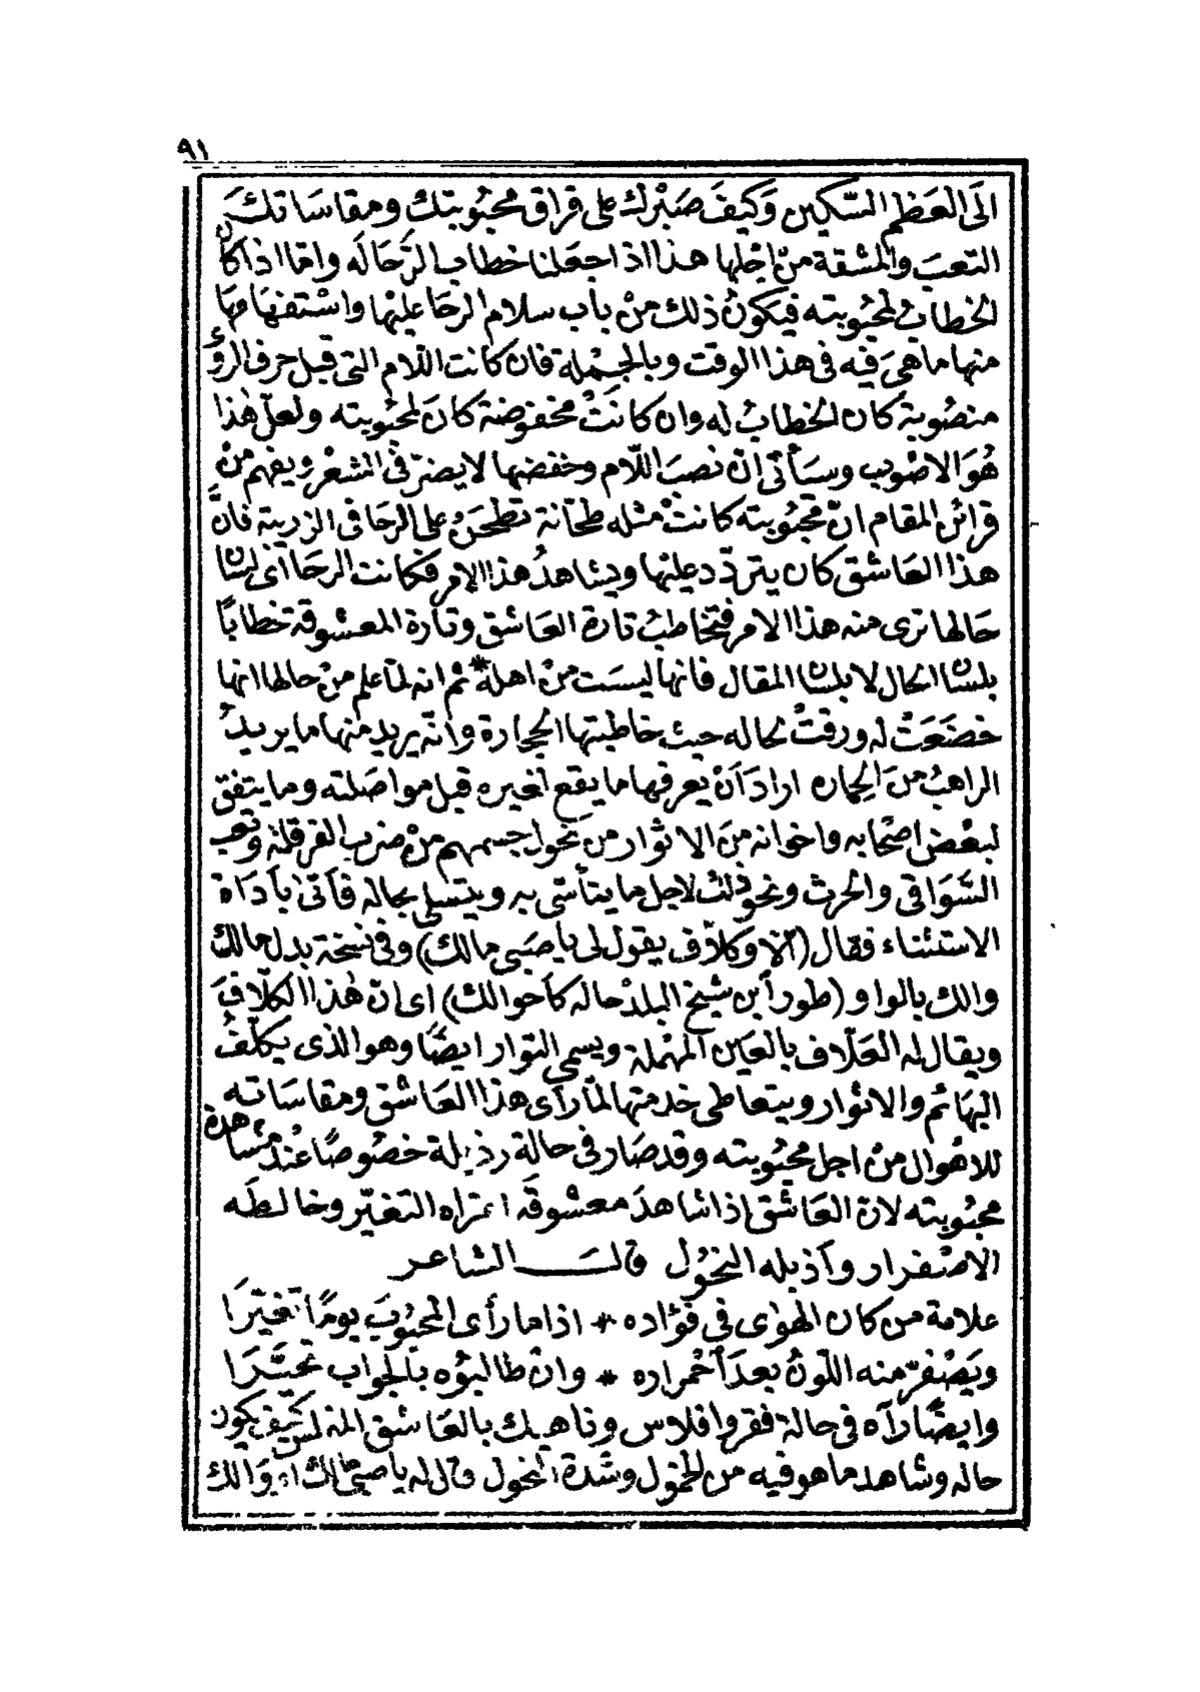 ٩١
الَى العَظْم السّكين وَكيفَ صَبْرك على فراق محبُوبتك ومقاسَاتك
التعبَ والمشقة منْ اجْلها هذا اذا جعَلنا خطاب الرَّحَا لَه وامّا اذا كان
الخطابُ لمحبُوبته فيكونُ ذلك منْ باب سلام الرحَا عليْها واسْتفهَامهَا
منها ما هىَ فيه فى هذا الوقت وبالجمْلة فان كانت اللام التى قبل حرف الروُّ
منصُوبة كان الخطابُ له وان كانَتْ مخفوضة كانَ لمحبُوبته ولعلّ هٰذا
هُوَ الاصْوب وسَيأتى انّ نصبَ اللّام وخفضها لا يضرّ فى الشعْر ويفهم منْ
قرائن المقام انّ محبُوبته كانتْ مثله طحّانة تطحَنُ على الرحَا فى الزريبة فانَّ
هذا العَاشق كان يتردّد عليْها ويشاهدُ هذا الامر فكانت الرحَا اى لسَان
حَالها ترى منه هذا الامر فتخاطبُ تارة العَاشق وتارة المعشوقة خطابًا
بلسَان الحال لا بلسَان المقال فانها ليسَت منْ اهله * ثم انه لمّا علم منْ حالها انها
خضَعَتْ له ورقتْ لحاله حيث خاطبتها الحجارة وانّه يريد منها ما يريدُ
الراهبُ منَ الحماره ارادَ اَنْ يعرفها ما يقع لغيره قبل مواصَلته وما يتفق
لبعْض اصْحابه واخوانه منَ الاثوار من نحُول جسمهم منْ ضرب الفرقلة وتعب
السّوَاقى والحَرث ونحو ذلك لاجل ما يتأسّى به ويتسلى بحاله فأتى بأدَاة
الاستثناء فقال (الا وكلاّف يقول لى يا صَبى مالك) وفى نسخة بدل مالك
والك بالواو (طور أبن شيخ البلدْ حاله كأحوالك) اى ان هٰذا الكلاّفَ
ويقال له العَلّاف بالعَين المهْملة ويسمى التوار ايضًا وهو الذى يكلّفُ
البهَائم والاثوار ويتعاطى خدمتها لمّا رأى هذا العَاشق ومقاسَاته
للاهْوال منْ اجل محبُوبته وقد صَار فى حالة رذيلة خصُوصًا عنْد مشاهدة
محبُوبته لانّ العَاشق اذا شاهدَ معشوقَه اعتراه التغيّر وخالطَه
الاصْفرار وأذبله النحُول قالَ الشاعر
علامة من كان الهوٰى فى فؤاده * اذا ما رأى المحبُوبَ يومًا تغيّرَا
ويَصْفرّ منه اللّونُ بعدَ احْمراره * وانْ طالبُوْه بالجواب تحيَّرَا
وايضًا رآه فى حالة فقر وافلاس وناهيك بالعَاشق المفلس كيف يكون
حاله وشاهد ما هو فيه من الخمول وشدة النحول قال له يا صبى مالك اى وَالك